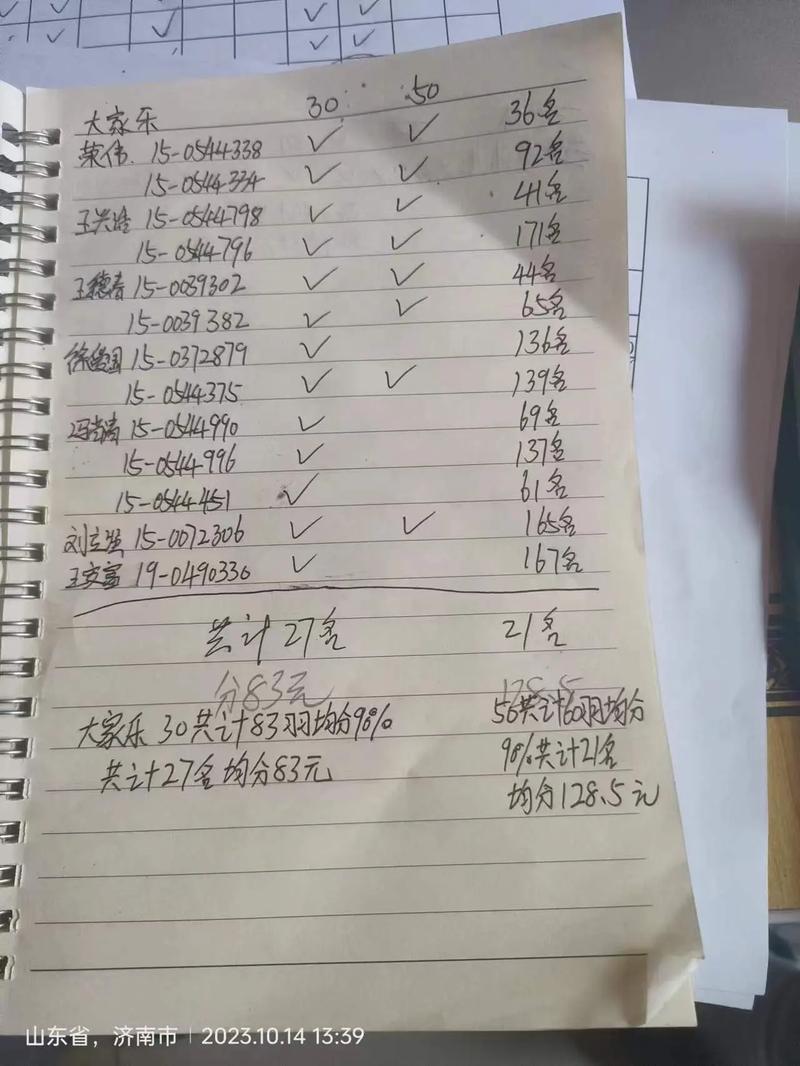 大家乐 30 50 36名
荣伟. 15-0544338 ✓ ✓ 92名
15-0544334 ✓ ✓ 41名
王兴 15-0544798 ✓ ✓ 171名
15-0544796 ✓ ✓ 44名
王德春 15-0039302 ✓ ✓ 65名
15-0039382 ✓ ✓ 136名
15-0372879 ✓
15-0544375 ✓ ✓ 139名
15-0544990 ✓ 69名
15-0544996 ✓ 137名
15-0544451 ✓ 61名
刘立强 15-0072306 ✓ ✓ 165名
王文富 19-0490330 ✓ 167名
共计27名 21名
分83元 128.5
大家乐 30共计83羽均分90%
共计27名均分83元
50共计60羽均分
90%共计21名
均分128.5元
山东省，济南市 | 2023.10.14 13:39